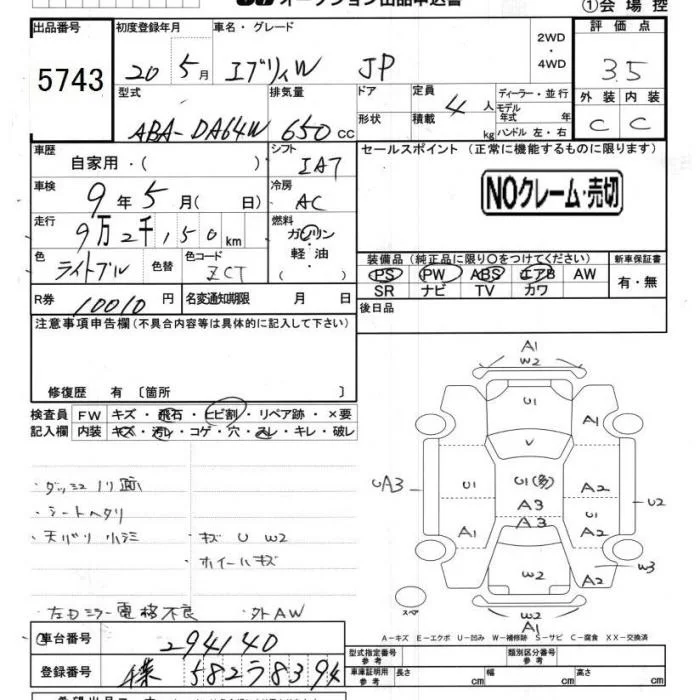 オークション出品申込書
①会場控
出品番号 5743
初度登録年月 20年5月
車名・グレード エブリィW JP
2WD・4WD
評価点 3.5
型式 ABA-DA64W
排気量 650cc
ドア 形状
定員 4人
積載 kg
ディーラー・並行
モデル年式 年
ハンドル 左・右
外装 C 内装 C
車歴 自家用・( )
シフト IA7
セールスポイント(正常に機能するものに限ります)
NOクレーム・売切
車検 9年5月( 日)
冷房 AC
走行 9万2千150km
燃料 ガソリン 軽油 ( )
色 ライトブル 色替 色コード ZCT
装備品(純正品に限り○をつけてください)
PS PW ABS エアB AW
SR ナビ TV カワ
新車保証書 有・無
R券 10010円
名変通知期限 月 日
後日品
注意事項申告欄(不具合内容等は具体的に記入して下さい)
修復歴 有〔箇所 〕
検査員記入欄
FW キズ・飛石・ヒビ割・リペア跡・×要
内装 キズ・汚レ・コゲ・穴・スレ・キレ・破レ
・ダッシュノリ跡
・シートヘタリ
・天バリ
・キズ U W2
・ホイールキズ
・左Dミラー電格不良 ・外AW
A1
W2
U1
A1
V
UA3
U1
U1(多)
A2
U2
A3
U1
A1
A3
A2
W3
W2
A2
スペア
W2
A1
A-キズ E-エクボ U-凹み W-補修跡 S-サビ C-腐食 XX-交換済
車台番号 294140
型式指定番号 参考
類別区分番号 参考
登録番号 582 8394
車庫証明用 参考 長さ cm 幅 cm 高さ cm